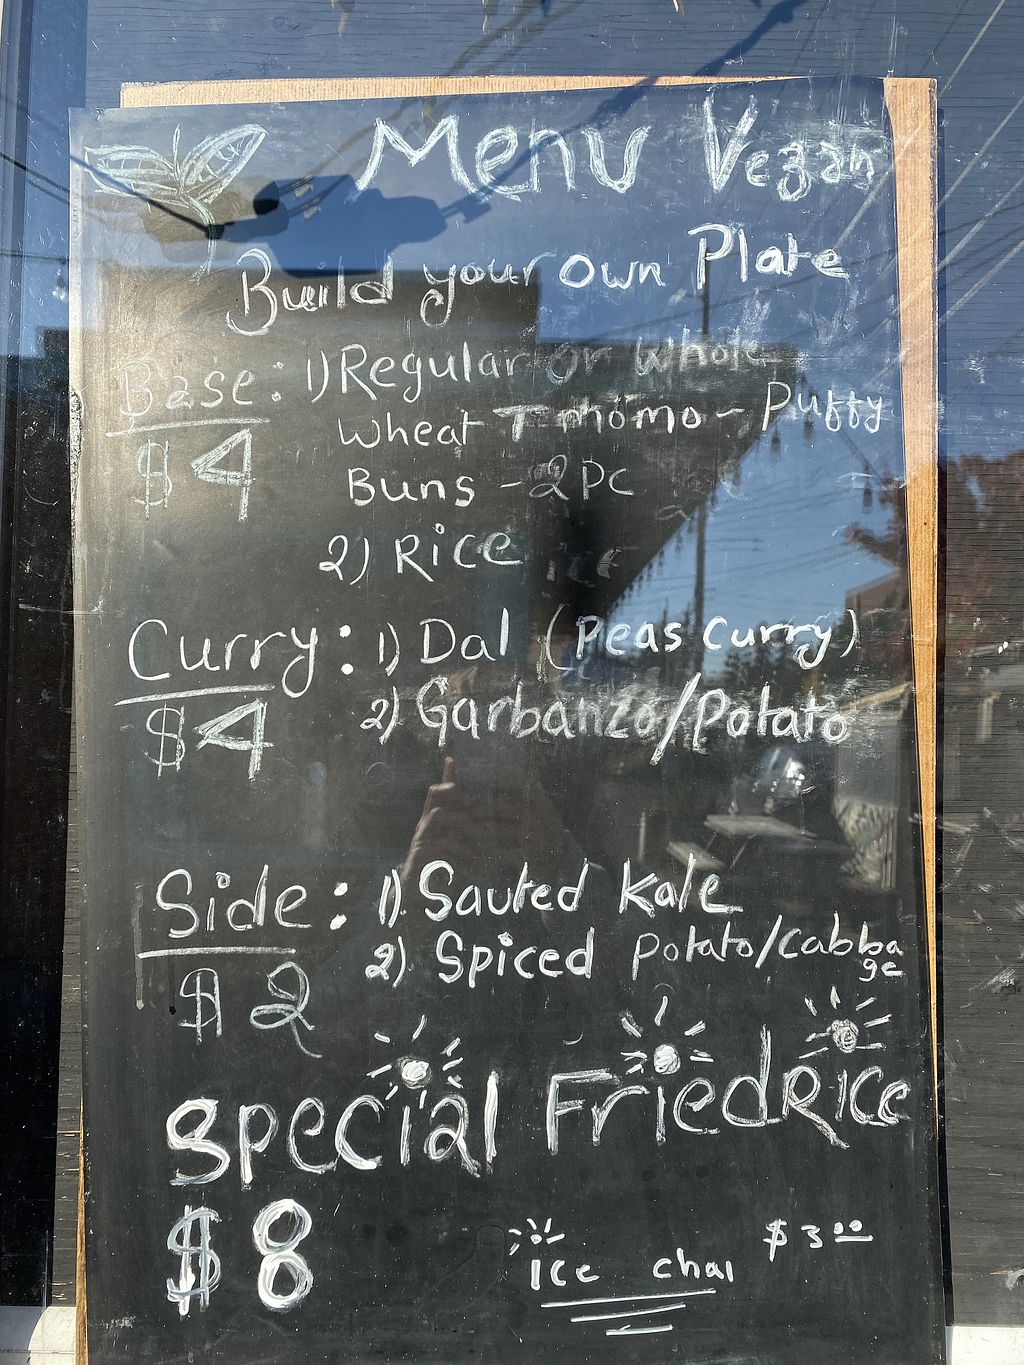 Menu Vegan
Build your own Plate
Base: 1) Regular or Whole
$4
Wheat T-momo - Puffy
Buns - 2 PC
2) Rice
Curry: 1) Dal (Peas Curry)
$4
2) Garbanzo/Potato
Side: 1) Sauted Kale
2) Spiced Potato/Cabbage
$2
Special Fried Rice
$8
Ice chai $3.00